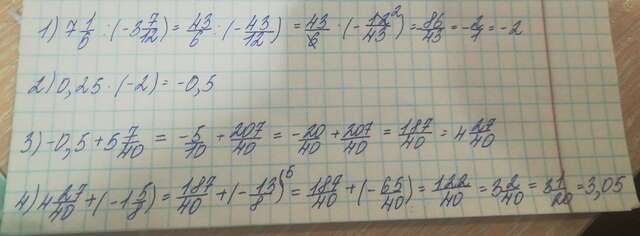 1) 7 1/6 : (-3 7/12) = 43/6 : (-43/12) = 43/6 · (-12/43)² = -86/43 = -2/1 = -2
2) 0,25 · (-2) = -0,5
3) -0,5 + 5 7/40 = -5/10 + 207/40 = -20/40 + 207/40 = 187/40 = 4 27/40
4) 4 27/40 + (-1 5/8) = 187/40 + (-13/8)⁽⁵ = 187/40 + (-65/40) = 122/40 = 3 2/40 = 3 1/20 = 3,05